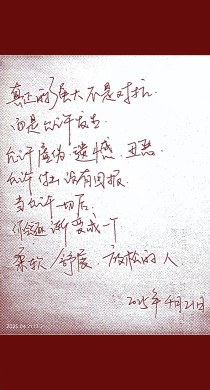 真正的强大不是对抗.
而是允许发生.
允许虚伪.遗憾.丑恶.
允许付出没有回报.
当允许一切后.
你会逐渐变成一个
柔软/舒展.放松的人
2025年4月21日